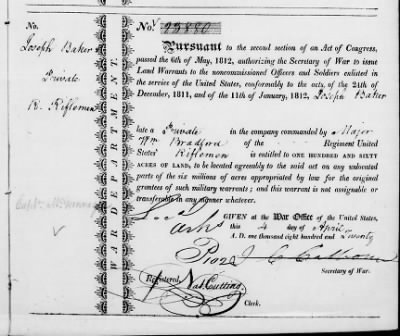 No.
Joseph Baker
Private
R. Riflemen
WAR DEPARTMENT.
No. 23880
Pursuant to the second section of an Act of Congress,
passed the 6th of May, 1812, authorizing the Secretary of War to issue
Land Warrants to the noncommissioned Officers and Soldiers enlisted in
the service of the United States, conformably to the acts, of the 24th of
December, 1811, and of the 11th of January, 1812, Joseph Baker
late a Private in the company commanded by Major
Wm Bradford of the Regiment United
States' Riflemen is entitled to ONE HUNDRED AND SIXTY
ACRES OF LAND, to be located agreeably to the said act on any unlocated
parts of the six millions of acres appropriated by law for the original
grantees of such military warrants; and this warrant is not assignable or
transferable in any manner whatever.
GIVEN at the War Office of the United States,
this 4 day of April
A. D. one thousand eight hundred and twenty
J C Calhoun
Secretary of War.
Registered, Nat Cutting
Clerk.